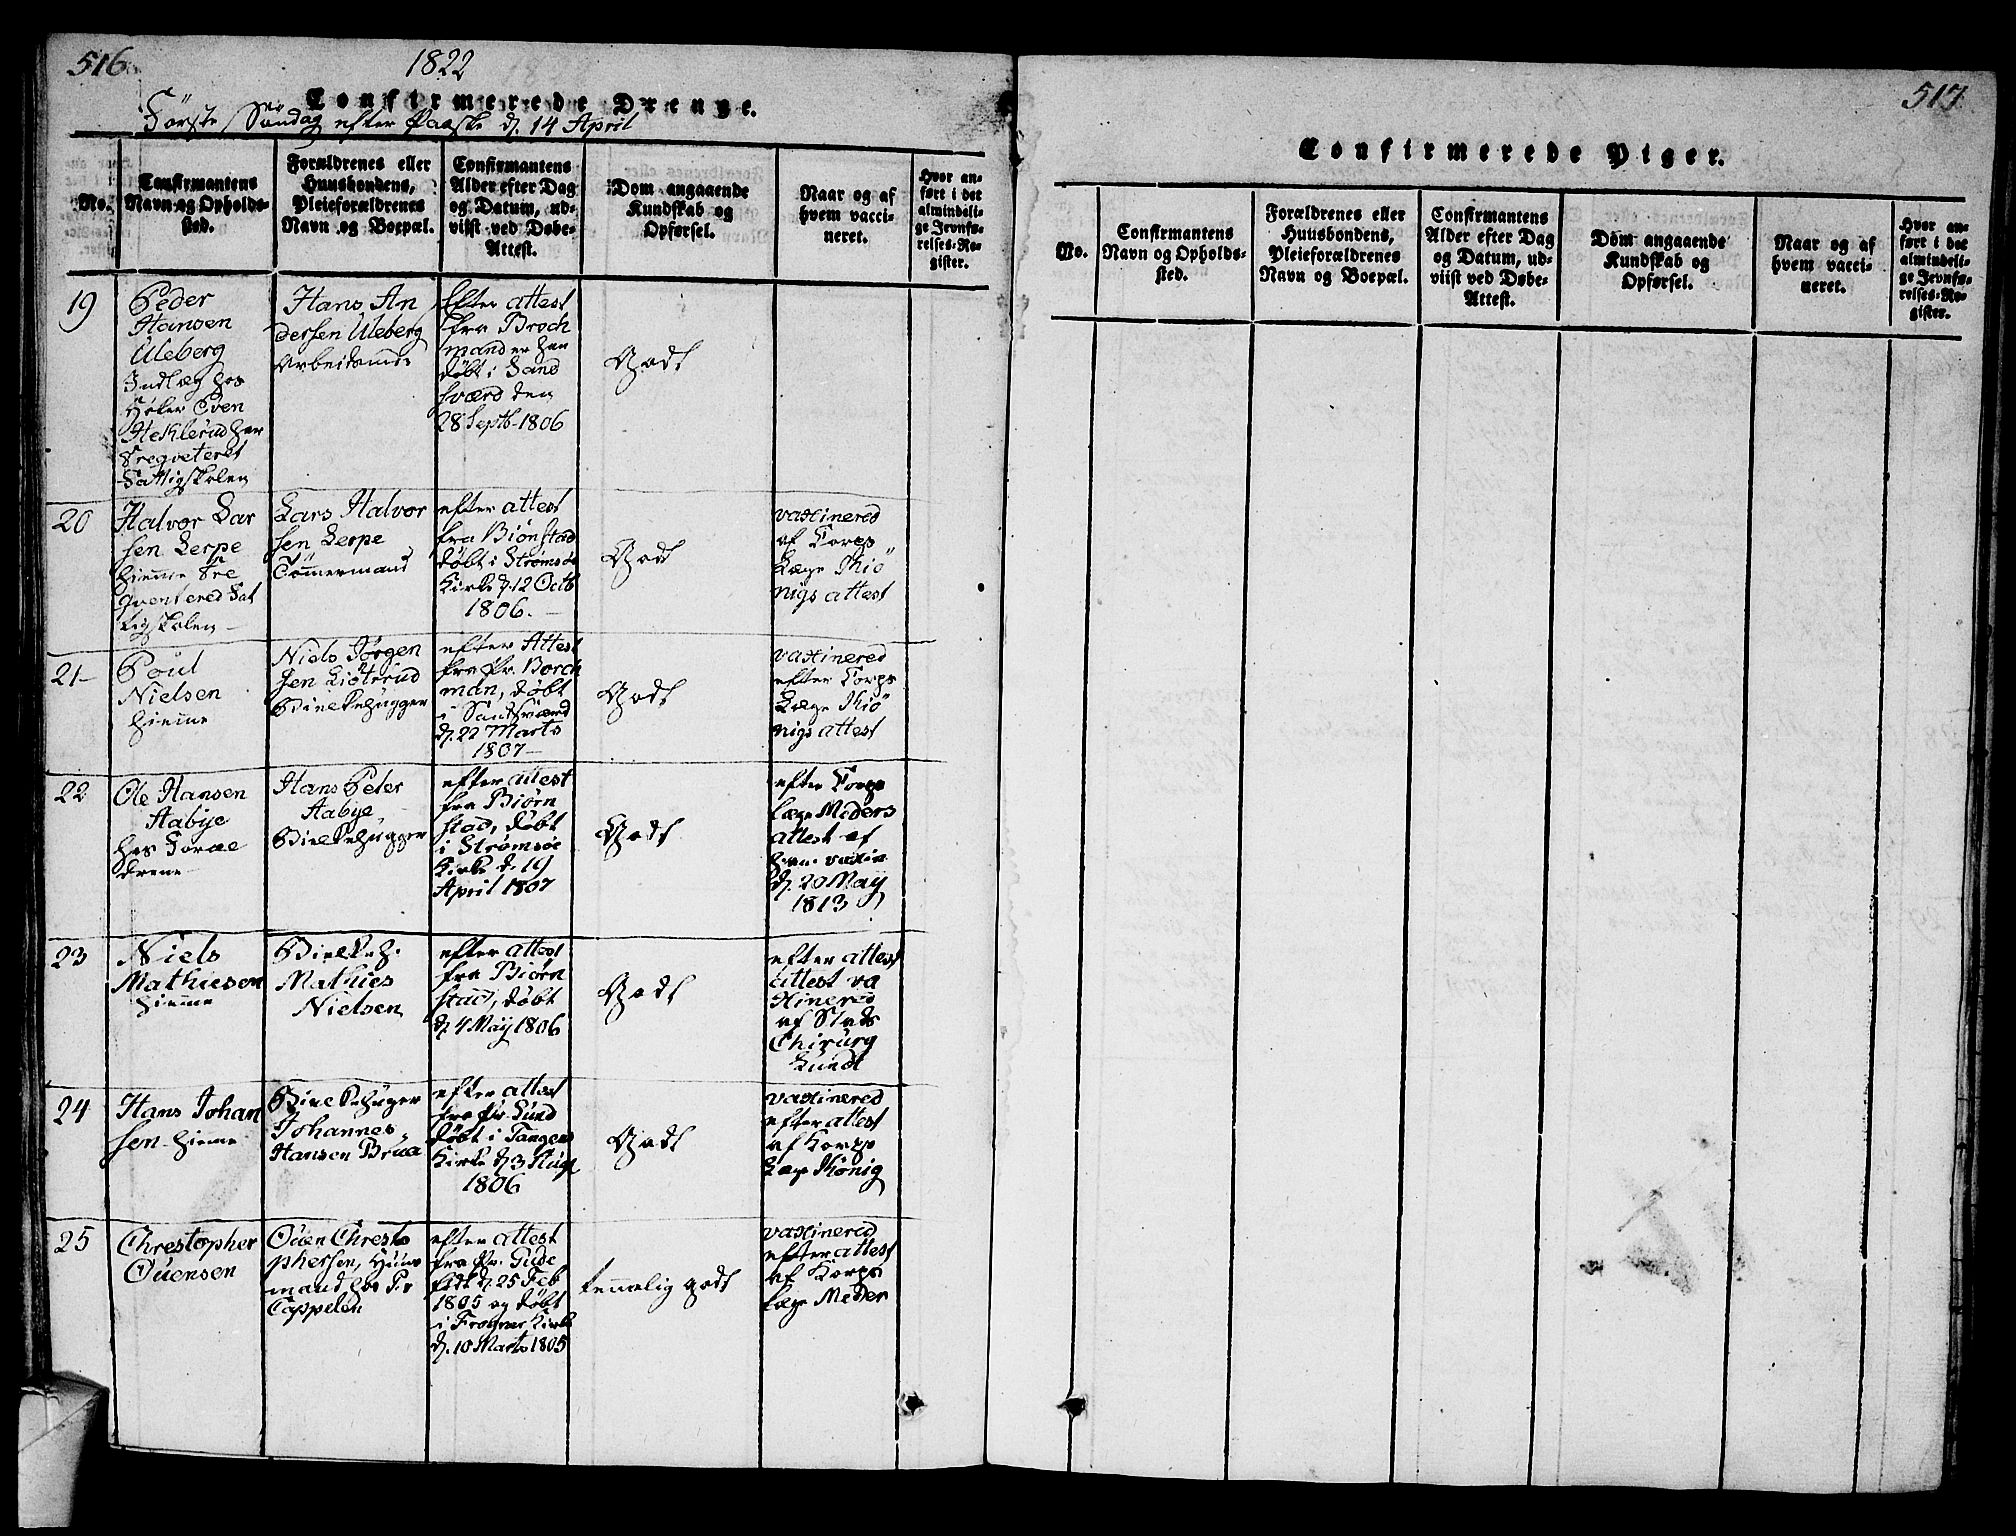 516
1822
Confirmerede Drenge.
Förste Söndag efter Paaske d. 14 April
No.
Confirmantens
Navn og Opholds-
sted.
Forældrenes eller
Huusbondens,
Pleieforældrenes
Navn og Boepæl.
Confirmantens
Alder efter Dag
og Datum, ud-
viist ved Døbe-
Attest.
Dom angaaende
Kundskab og
Opførsel.
Naar og af
hvem vacci-
neret.
Hvor an-
ført i det
almindeli-
ge Jevnfø-
relses-Re-
gister.
19
Peder
Hansen
Uleberg
Indlæg hos
Høker Even
Heklerud har
Freqveteret
Fattigskolen
Hans An
dersen Uleberg
Arbeidsmd
Efter attest
fra Broch
mand er han
døbt i Sand
sværd den
28 Septb 1806
Godt
20
Halvor Lar
sen Lerpe
hiemme Fre
qventered Fat
tigskolen
Lars Halvor
sen Lerpe
Tömmermand
efter attest
fra Biönstad
döbt i Strømsøe
Kirke d. 12 Octb
1806.
Godt
vaxinered
af Corps
Læge Kiö
nigs attest
21
Poul
Nielsen
hieme
Niels Jörgen
sen Liöterud
Bielkehugger
efter Attest
fra Pr. Borch
man, döbt
i Sandsværd
d. 22 Marts
1807
Godt
vaxinered
efter Corps
Læge Kiö
nigs attest
22
Ole Hansen
Aabye
hos Foræl
drene
Hans Peter
Aabye
Bielkehugger
efter attest
fra Biörn
stad, döbt
i Strømsøe
Kirke d. 19
April 1807
Godt
efter Corps
læge Meders
attest af
ham vaxin
d. 20 May
1813
23
Niels
Mathiesen
hieme
Bielkeh.
Mathies
Nielsen
efter attest
fra Biörn
stad, döbt
d. 4 May 1806
Godt
efter attest
attest va
xinered
af Stads
Chirurg
Lundt
24
Hans Johan
sen hieme
Bielkehuger
Johannes
Hansen Brua
efter attest
fra Pr. Lund
döbt i Tangens
Kirke d. 3 Aug
1806
Godt
vaxinered
efter attest
af Korps
Læge König
25
Chrestopher
Ouensen
Ouen Chresto
phersen, Huus
mand hos Pr
Cappelen
efter attest
fra Pr. Gude
född d. 25 Feb
1805 og döbt
i Frogner Kirke
d. 10 Marts 1805
temmelig godt
vaxinered
efter attest
af Korps
læge Meder
517
Confirmerede Piger.
No.
Confirmantens
Navn og Opholds-
sted.
Forældrenes eller
Huusbondens,
Pleieforældrenes
Navn og Boepæl.
Confirmantens
Alder efter Dag
og Datum, ud-
viist ved Døbe-
Attest.
Dom angaaende
Kundskab og
Opførsel.
Naar og af
hvem vacci-
neret.
Hvor an-
ført i det
almindeli-
ge Jevnfø-
relses-Re-
gister.